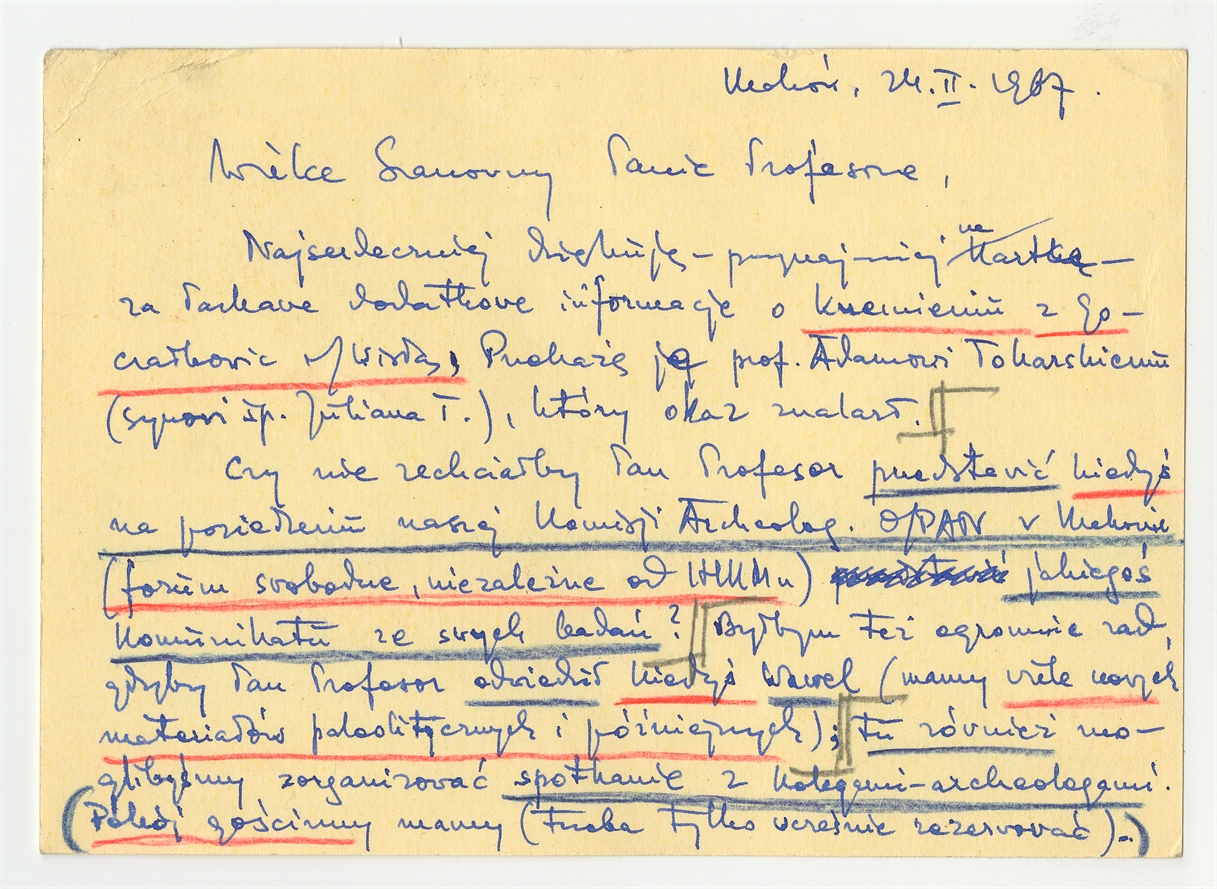 Kraków, 24.II.1987.
Wielce Szanowny Panie Profesorze,
Najserdeczniej dziękuję – przynajmniej na kartkę –
za łaskawe dodatkowe informacje o krzemieniu z Go-
ściatkowic n/Wisłą, Przekażę ją prof. Adamowi Tokarskiemu
(synowi śp. Juliana T.), który okaz znalazł.
Czy nie zechciałby Pan Profesor przedstawić kiedyś
na posiedzeniu naszej Komisji Archeolog. O/PAN w Krakowie
(forum swobodne, niezależne od IHKMu) jakiegoś
komunikatu ze swych badań? Byłbym też ogromnie rad,
gdyby Pan Profesor odwiedził kiedyś Wawel (mamy wiele nowych
materiałów paleolitycznych i późniejszych); tu również mo-
glibyśmy zorganizować spotkanie z kolegami-archeologami.
(Pokój gościnny mamy (trzeba tylko wcześnie zarezerwować).)